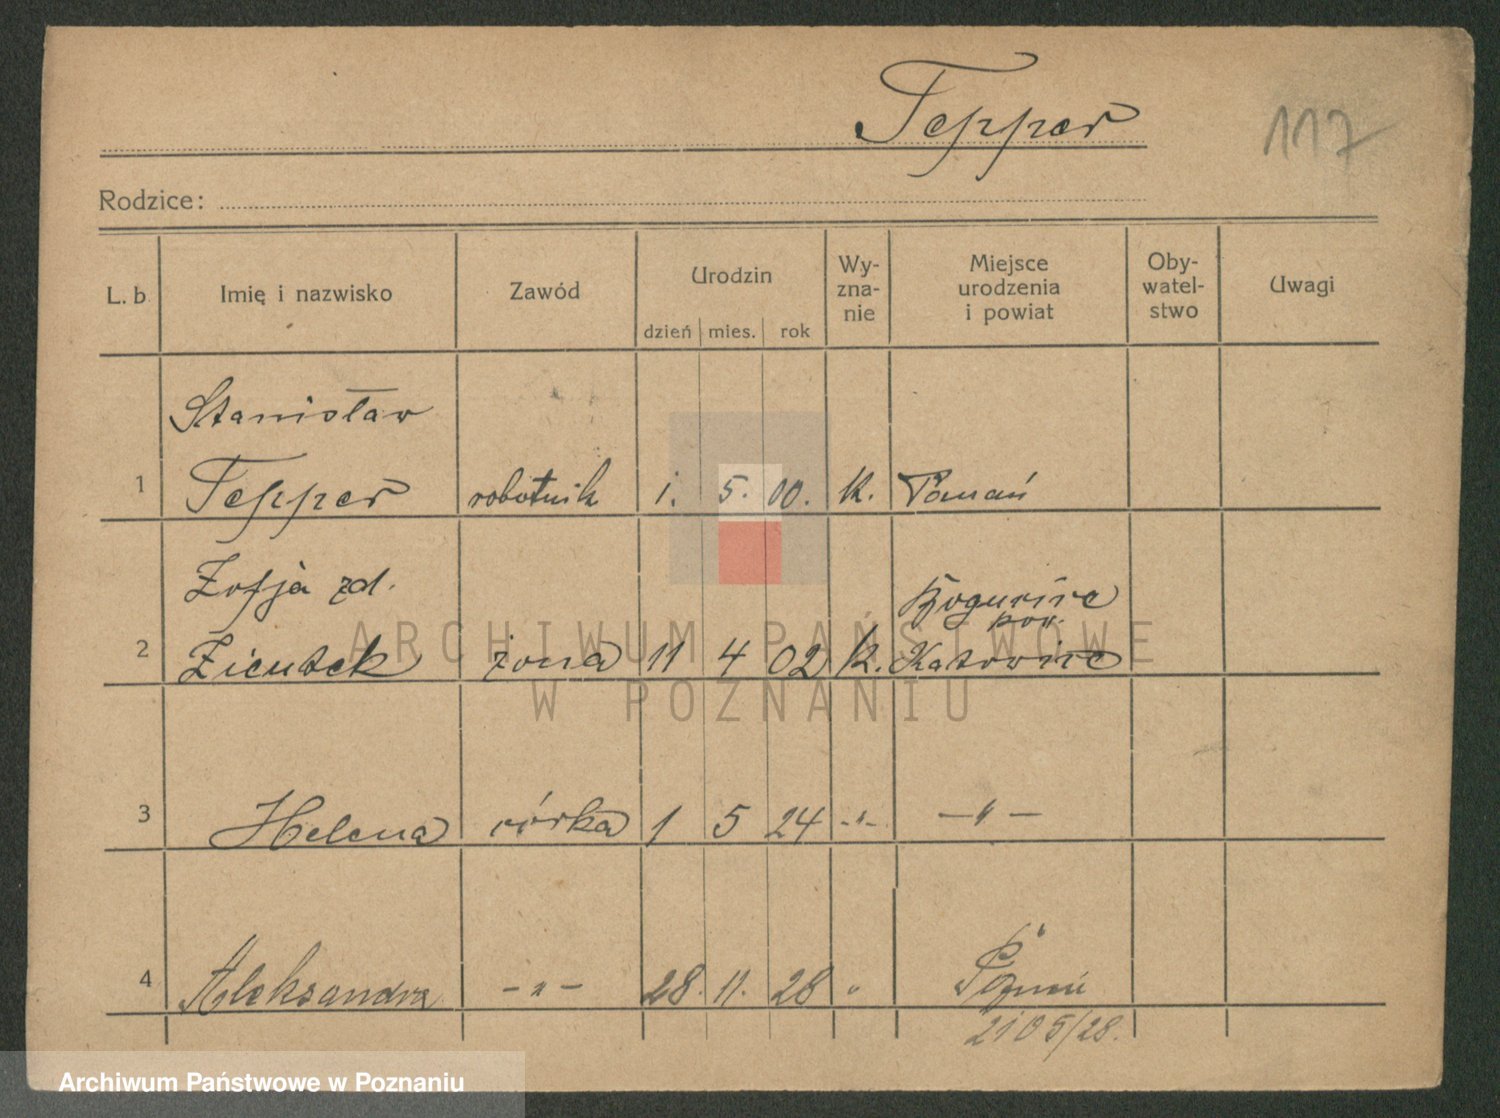 Tepper
117
Rodzice:
L. b
Imię i nazwisko
Zawód
Urodzin
dzień mies. rok
Wy-
zna-
nie
Miejsce
urodzenia
i powiat
Oby-
watel-
stwo
Uwagi
Stanisław
1 Tepper robotnik 1. 5. 00. k. Poznań
Zofja zd.
Bogucice
pow.
2 Zientek żona 11 4 02 k. Katowice
3 Helena córka 1 5 24 -"- -"-
4 Aleksandra -"- 28. 11. 28 " Poznań
2105/28.
ARCHIWUM PAŃSTWOWE
W POZNANIU
Archiwum Państwowe w Poznaniu